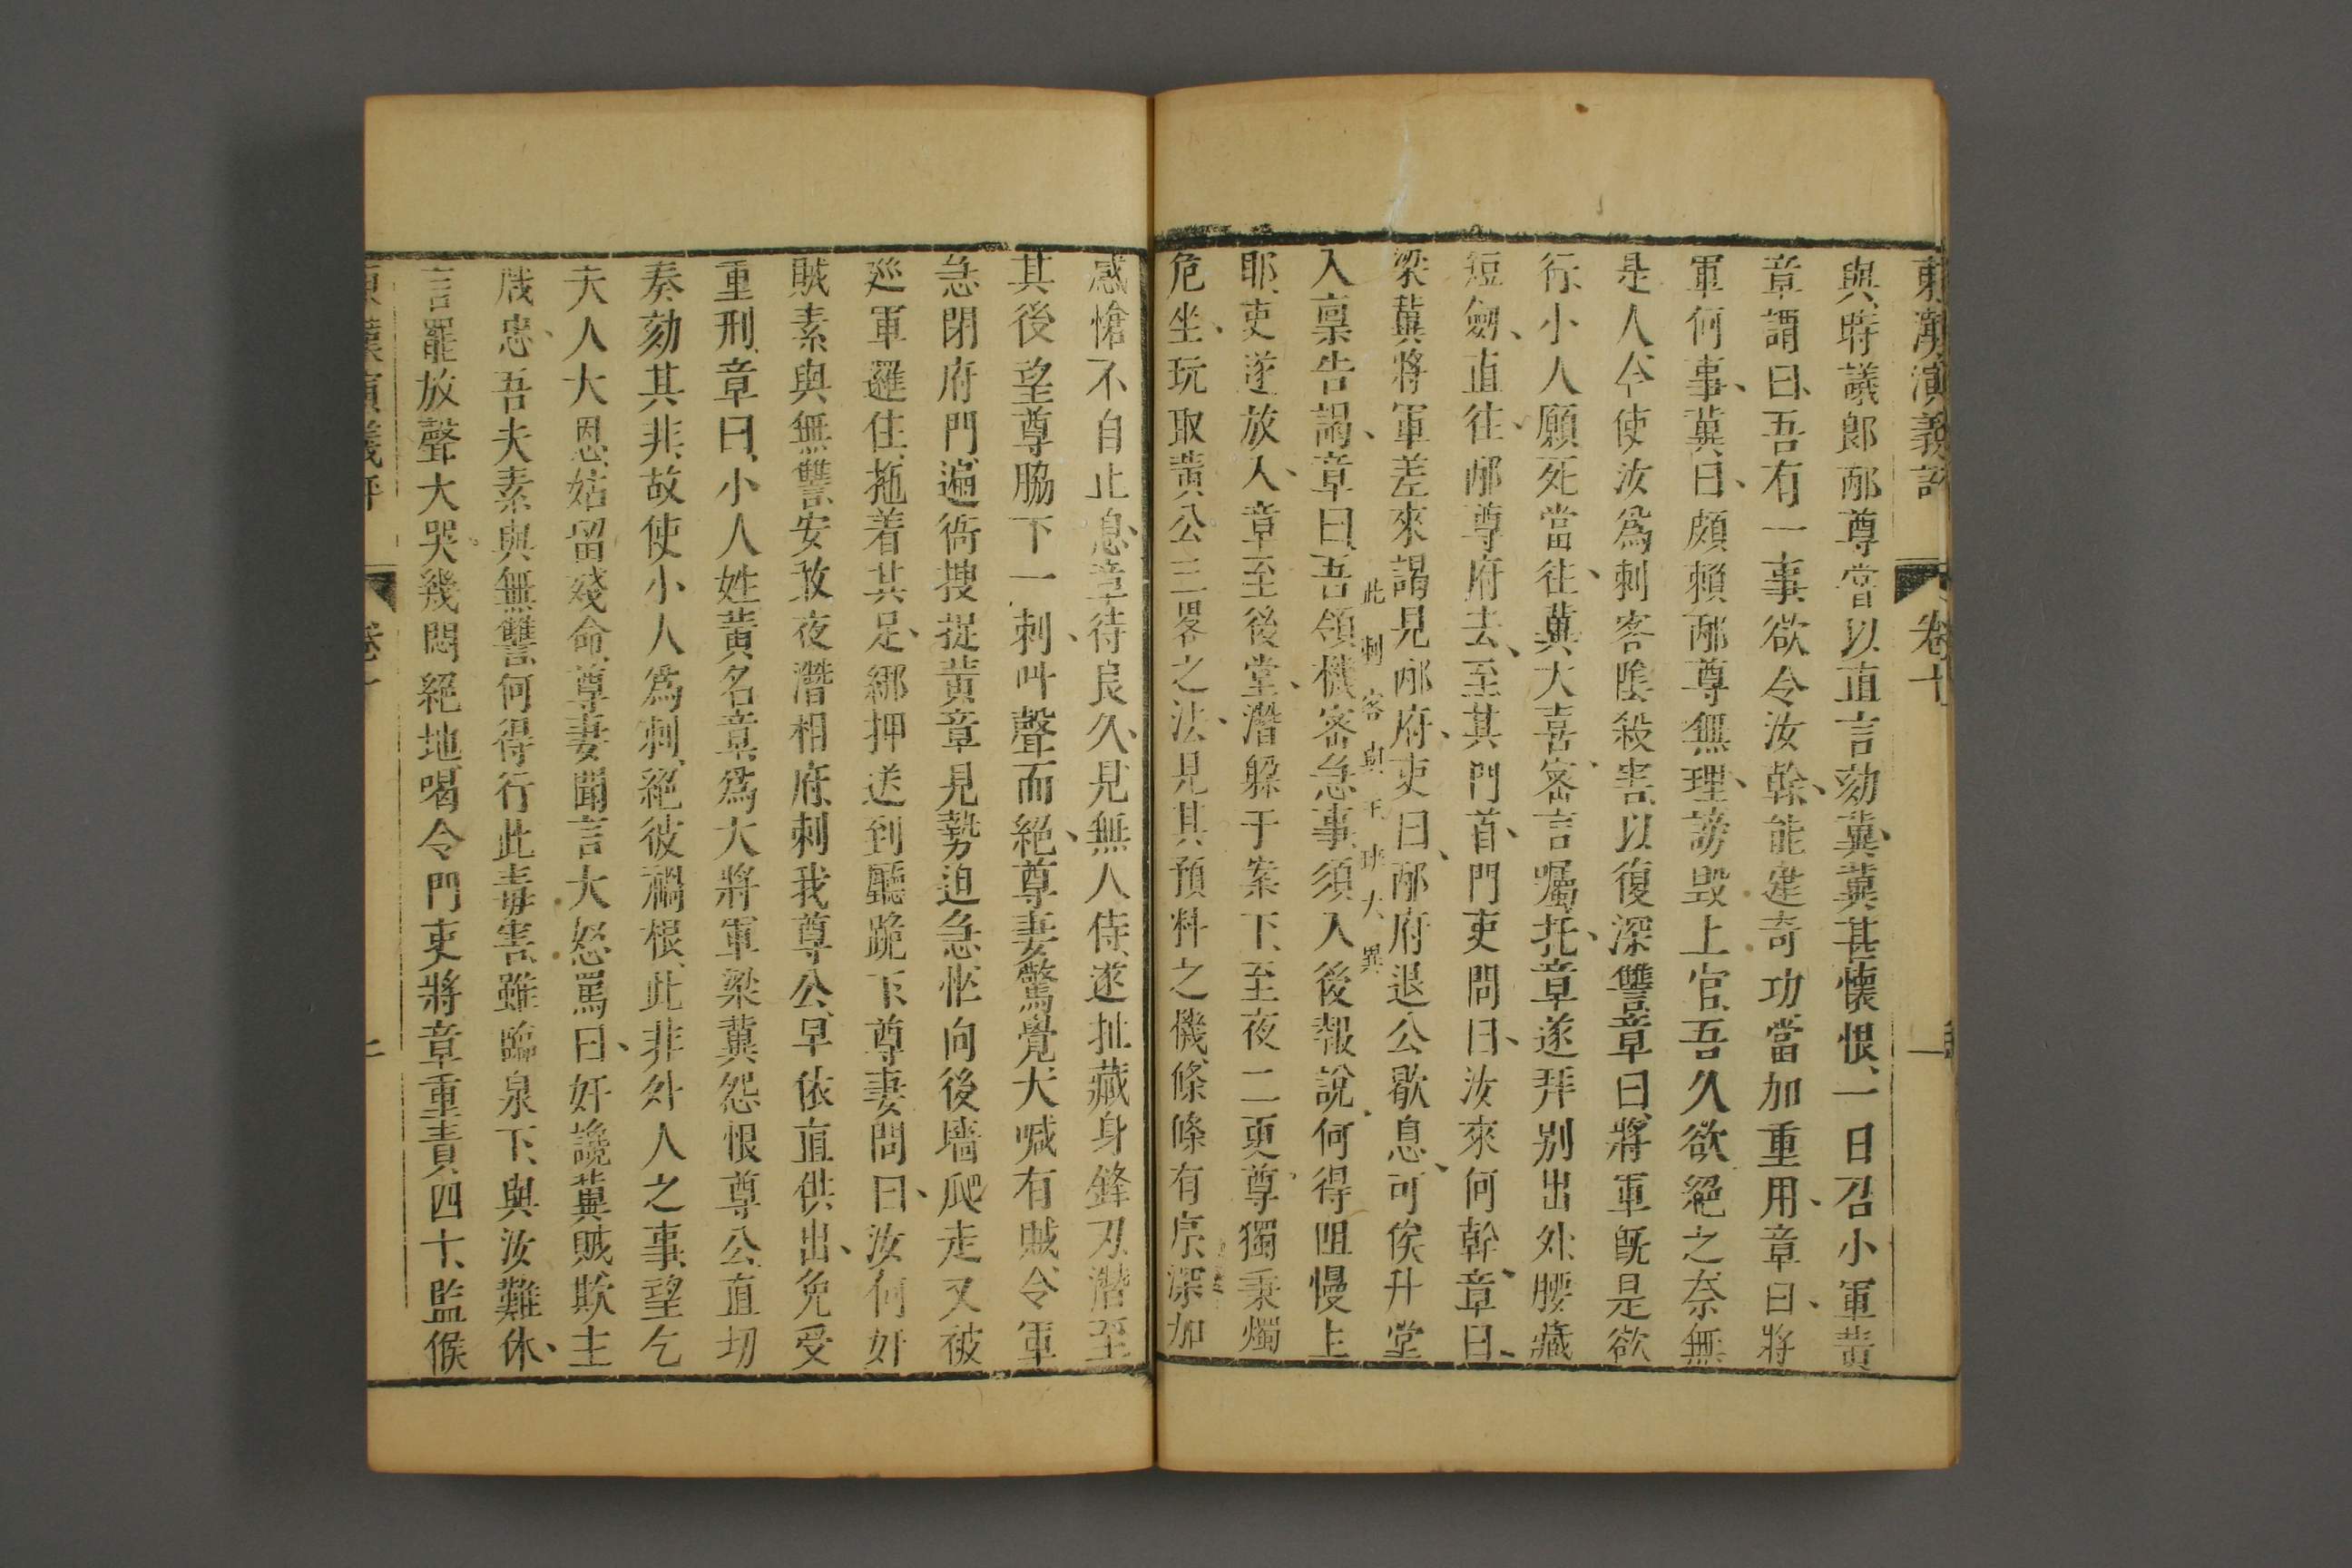 東漢演義評 卷十
與、時議郎邴尊嘗以直言劾冀、冀甚懷恨、一日召小軍黃
章謂曰、吾有一事、欲令汝幹、能建奇功、當加重用、章曰、將
軍何事、冀曰、頗賴邴尊無理、謗毀上官、吾久欲絕之、奈無
是人、今使汝爲刺客、陰殺害、以復深讐、章曰、將軍旣是欲
行、小人願死當往、冀大喜、密言囑托、章遂拜別出外、腰藏
短劒、直往邴尊府去、至其門首、門吏問曰、汝來何幹、章曰、
梁冀將軍差來謁見邴府、吏曰、邴府退公歇息、可俟升堂
此刺客與于班大異
入禀告謁、章曰、吾領機密急事、須入後報說、何得阻慢上
耶、吏遂放入、章至後堂、潛躲于案下、至夜二更、尊獨秉燭
危坐、玩取黃公三畧之法、見其預料之機、條條有序、深加
感愴、不自止息、章待良久、見無人侍、遂扯藏身鋒刃、潛至
其後、望尊脇下一刺、呌聲而絕、尊妻驚覺、大喊有賊、令軍
急閉府門、遍衙搜捉、黃章見勢迫急、忙向後墻爬走、又被
廵軍邏住、拖着其足、綁押送到聽跪下、尊妻問曰、汝何奸
賊、素與無讐、安敢夜潛相府、刺我尊公、早依直供出、免受
重刑、章曰、小人姓黃名章、爲大將軍梁冀怨恨尊公直切
奏劾其非、故使小人爲刺、絕彼禍根、此非外人之事、望乞
夫人大恩、姑留殘命、尊妻聞言大怒、罵曰、奸讒冀賊、欺主
戕忠、吾夫素與無讐、何得行此毒害、雖臨泉下、與汝難休、
言罷放聲大哭、幾悶絕地、喝令門吏將章重責四十、監候
東漢演義評